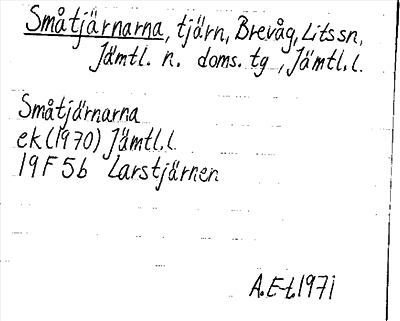 Småtjärnarna, tjärn, Brevåg, Lits sn,
Jämtl. n. doms. tg, Jämtl.l.
Småtjärnarna
ek(1970) Jämtl.l.
19F5b Larstjärnen
A.E-t.1971